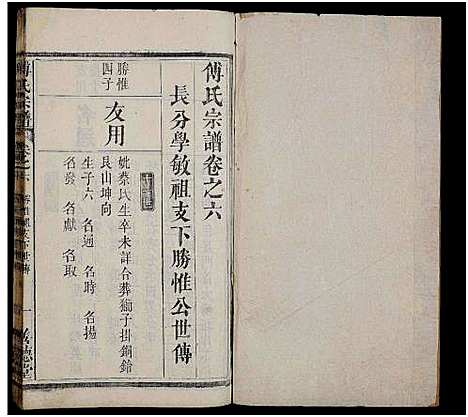 傅氏宗譜卷之六
長分學敏祖支下勝惟公世傳
十一世
勝惟
四子
友用
妣蔡氏生卒未詳合葬獅子掛銅鈴
艮山坤向
生子六 名通 名時 名揚
名發 名獻 名取
傅氏宗譜
卷之六
一